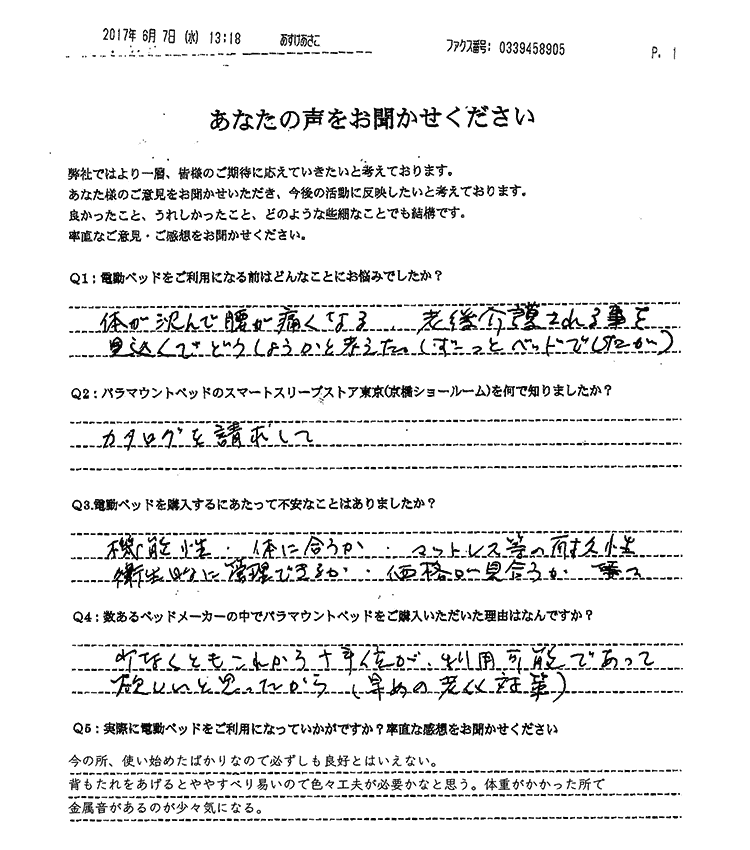 2017年 6月 7日 (水) 13:18 あすけあさこ ファクス番号: 0339458905 P. 1
あなたの声をお聞かせください
弊社ではより一層、皆様のご期待に応えていきたいと考えております。
あなた様のご意見をお聞かせいただき、今後の活動に反映したいと考えております。
良かったこと、うれしかったこと、どのような些細なことでも結構です。
率直なご意見・ご感想をお聞かせください。
Q1:電動ベッドをご利用になる前はどんなことにお悩みでしたか?
体が沈んで腰が痛くなる 老後介護される事を
見込んでどうしようかと考えた。(ずーっとベッドでしたが)
Q2:パラマウントベッドのスマートスリープストア東京(京橋ショールーム)を何で知りましたか?
カタログを請求して
Q3.電動ベッドを購入するにあたって不安なことはありましたか?
機能性・体に合うか・マットレス等の耐久性
衛生的に管理できるか・価格が見合うか
Q4:数あるベッドメーカーの中でパラマウントベッドをご購入いただいた理由はなんですか?
少なくともこれから十年位が、利用可能であって
欲しいと思ったから(早めの老化対策)
Q5:実際に電動ベッドをご利用になっていかがですか?率直な感想をお聞かせください
今の所、使い始めたばかりなので必ずしも良好とはいえない。
背もたれをあげるとややすべり易いので色々工夫が必要かなと思う。体重がかかった所で
金属音があるのが少々気になる。